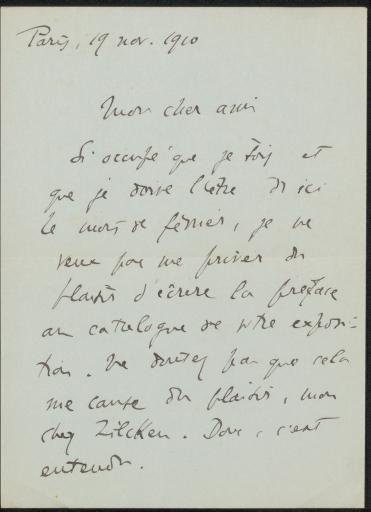 Paris, 19 nov. 1910
Mon cher ami
Si occupé que je sois et
que je doive l'être d'ici
le mois de février, je ne
veux pas me priver du
plaisir d'écrire la préface
au catalogue de votre exposi-
tion. Ne doutez pas que cela
me cause du plaisir, mon
cher Zilcken. Donc, c'est
entendu.